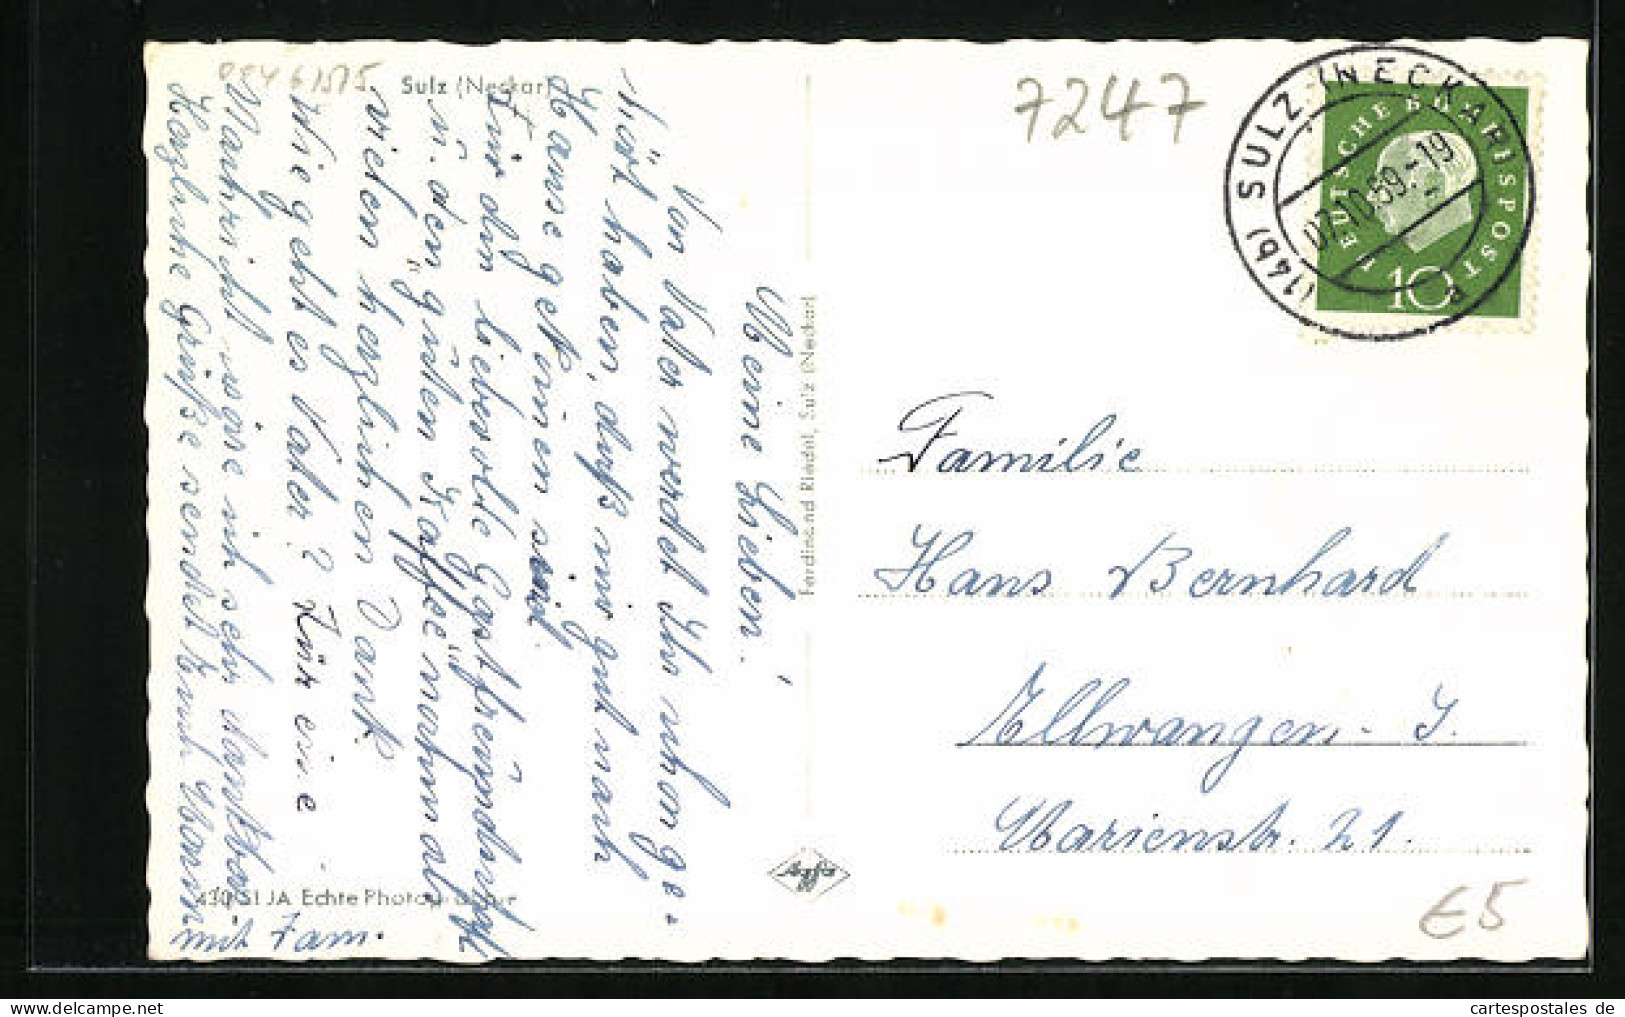 09461515
Sulz (Neckar)
7247
(14b) SULZ (NECKAR)
07.10.59.-19
a
DEUTSCHE BUNDESPOST
10
Meine Lieben!
Von Vater werdet Ihr schon ge-
hört haben, daß wir gut nach
Hause gekommen sind.
Für die liebevolle Gastfreundschaft
u. den "guten Kaffee" nochmals
vielen herzlichen Dank.
Wie geht es Vater? Für eine
Nachricht wäre ich sehr dankbar.
Herzliche Grüße sendet Euch
mit Fam.
Ferdinand Riedel, Sulz (Neckar)
Agfa
430 SI JA Echte Photographie
Familie
Hans Bernhard
Ellwangen - J.
Marienstr. 21.
€5
cartespostales de